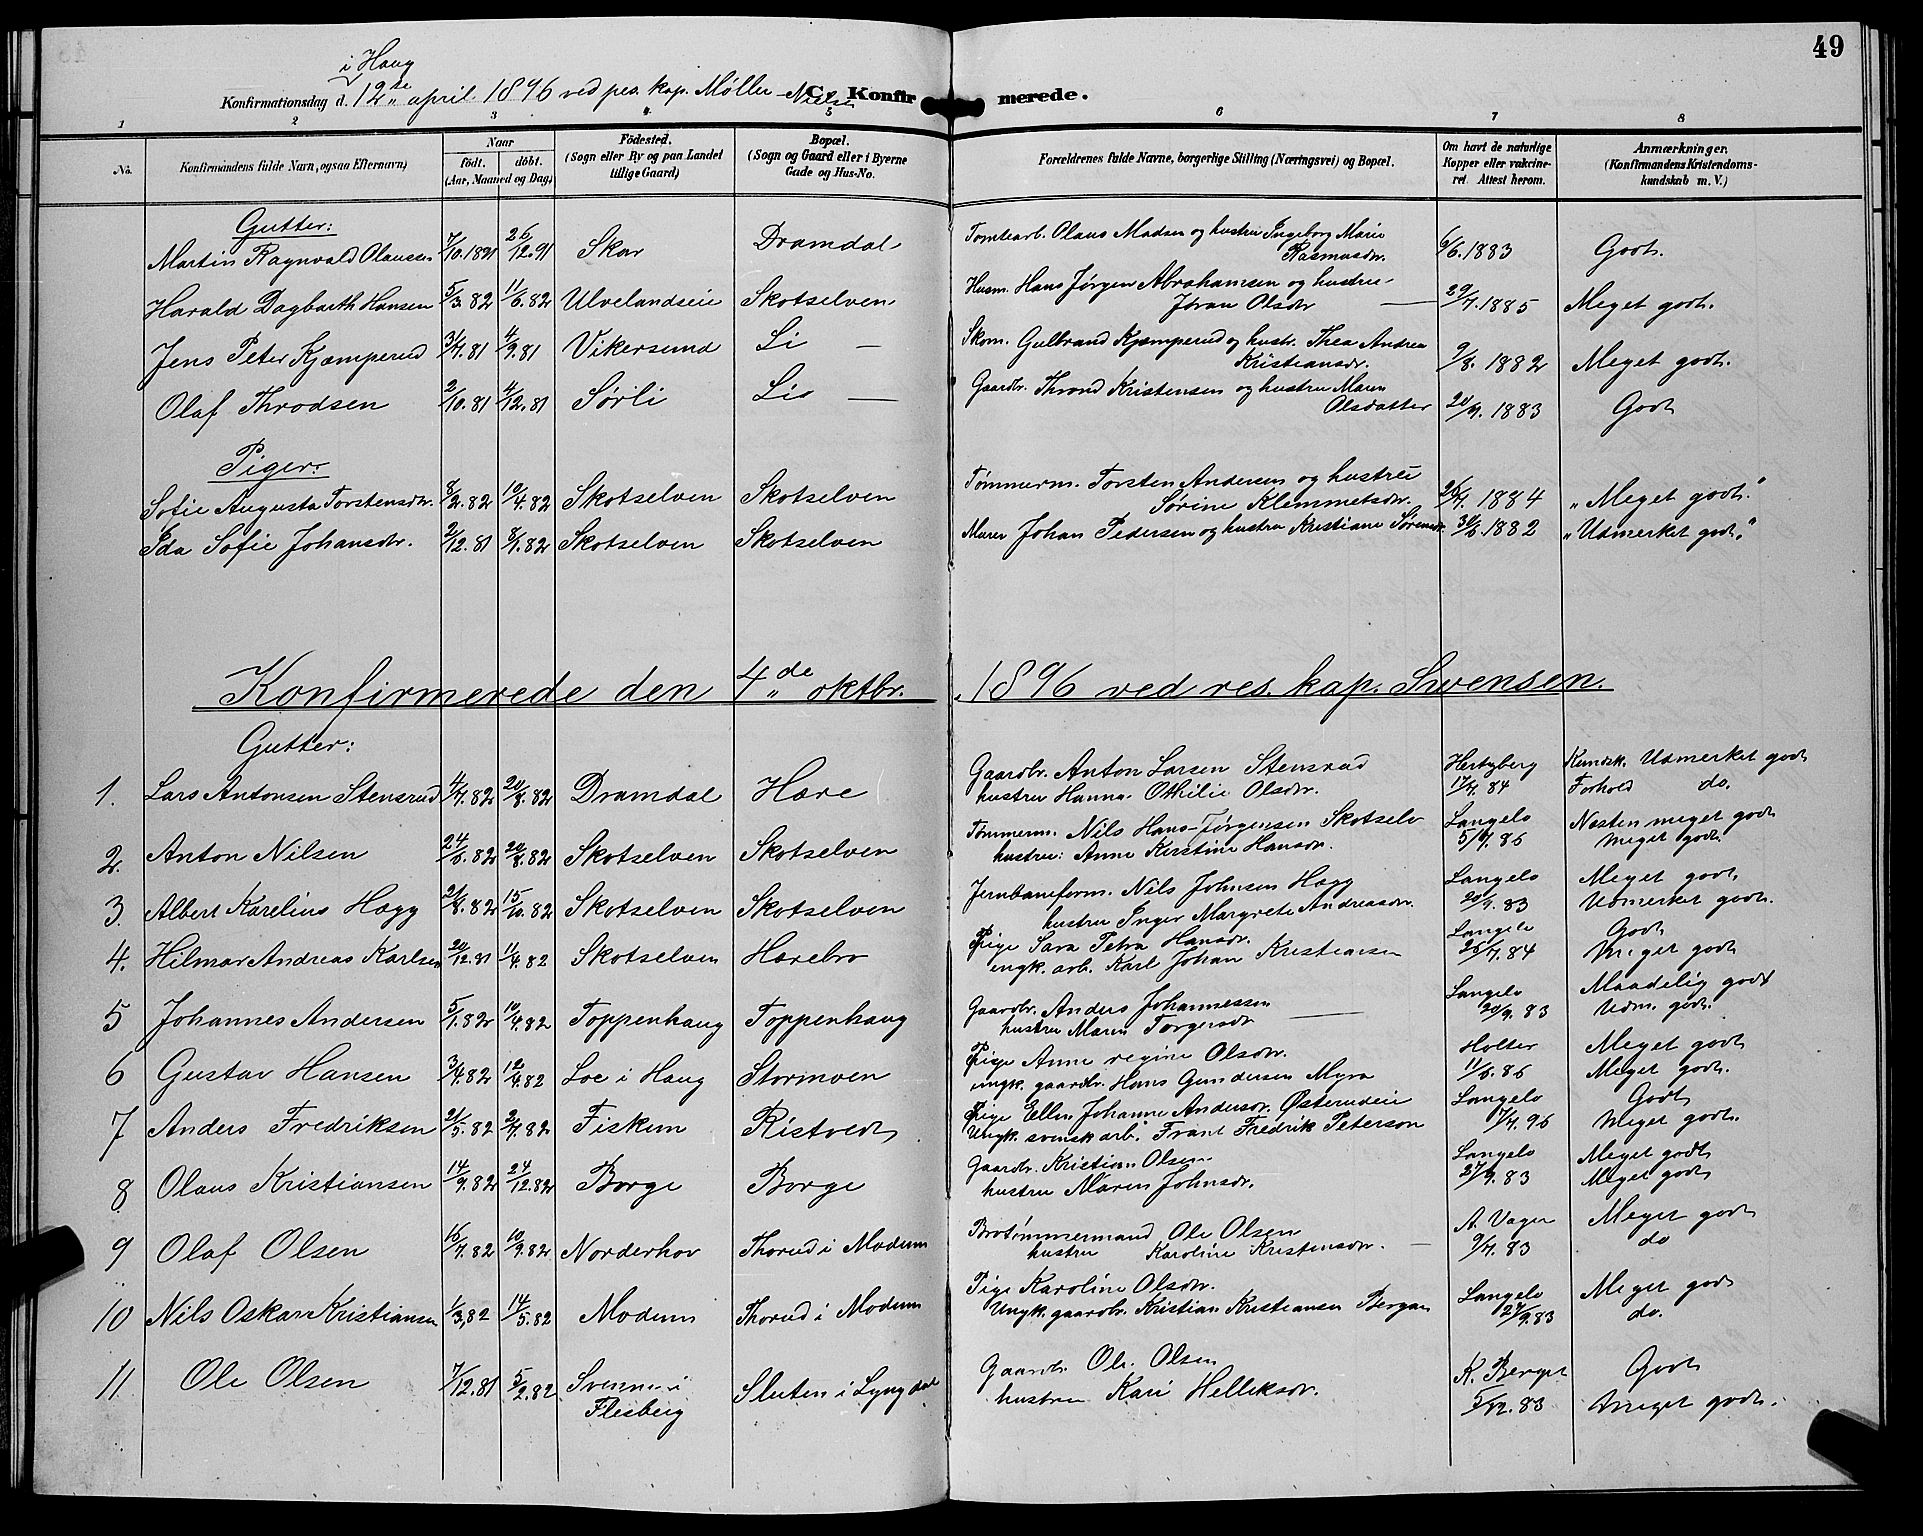 49
i Haug
Konfirmationsdag d. 12te april 1896 ved pers. kap. Møller-Nielsen C. Konfirmerede.
1 2 3 4 5 6 7 8
No. Konfirmandens fulde Navn, ogsaa Efternavn) Naar født. døbt. (Aar, Maaned og Dag) Födested. (Sogn eller By og paa Landet tillige Gaard) Bopæl. (Sogn og Gaard eller i Byerne Gade og Hus-No. Forældrenes fulde Navne, borgerlige Stilling (Næringsvei) og Bopæl. Om havt de naturlige Kopper eller vakcineret. Attest herom. Anmærkninger. (Konfirmandens Kristendomskundskab m. V.)
Gutter:
Martin Ragnvald Olaussen 7/10.1891 26/12.91 Skar Dramdal Tomtearb. Olaus Madsen og hustru Ingeborg Marie Rasmusdr. 6/6.1883 Godt.
Harald Dagbarth Hansen 5/3.82 11/6.82 Ulvelandseie Skotselven Husm. Hans Jørgen Abrahamsen og hustru Jøran Olsdr 29/7.1885 Meget godt.
Jens Peter Kjæmperud 3/7.81 4/9.81 Vikersund Li — Skom. Gulbrand Kjæmperud og hustr. Thea Andrea Kristiansdr. 9/8.1882 Meget godt.
Olaf Throdsen 2/10.81 4/12.81 Sørli Lio — Gaardbr. Thrond Kristensen og hustru Maren Olsdatter 20/9.1883 Godt
Piger:
Sofie Augusta Torstensdr. 8/2.82 10/4.82 Skotselven Skotselven Tømmerm. Torsten Andersen og hustru Sørine Klemmetsdr. 26/9.1884 „Meget godt."
Ida Sofie Johansdr. 2/12.81 8/1.82 Skotselven Skotselven Murer Johan Pedersen og hustru Kristiane Sørensdr. 30/6.1882 „Udmerket godt."
Konfirmerede den 4de oktbr. 1896 ved res. kap. Svensen.
Gutter:
1. Lars Antonsen Stensrud 4/7.82 20/8.82 Dramdal Hære Gaardbr. Anton Larsen Stensrud hustru Hanna Othilie Olsdr. Hertzberg 17/7.84 Kundsk. Udmerket godt Forhold do.
2. Anton Nilsen 24/6.82 20/8.82 Skotselven Skotselven Tømmerm. Nils Hans-Jørgensen Skotselv hustru: Anne Kerstine Hansdr. Langelo 5/9.86 Næsten meget godt Meget godt.
3 Albert Karelius Hagg 21/8.82 15/10.82 Skotselven Skotselven Jernbaneform. Nils Johnsen Hagg hustru Inger Margrete Andreasdr. Langelo 20/9.83 Meget godt, Udmerket godt.
4. Hilmar Andreas Karlsen 20/12.81 11/4.82 Skotselven Hærebro Pige Sara Petra Hansdr. ungk. arb. Karl Johan Kristiansen Langelo 26/7.84 Godt Meget godt
5 Johannes Andersen 5/1.82 10/4.82 Toppenhaug Toppenhaug Gaardbr. Anders Johannessen hustru Maren Torgersdr — Langelo 20/9.83 Maadelig godt Udm. godt.
6 Gustav Hansen 3/4.82 12/4.82 Loe i Haug Stormoen Pige Anne Regine Olsdr. ungk. gaardbr. Hans Gundersen Myra Holter 11/6.86 Meget godt Meget godt.
7 Anders Fredriksen 21/5.82 2/7.82 Fiskum Ristvedt Pige Ellen Johanne Andersdr. Østerudeie Ungk. svensk arb. Frant Fredrik Peterson Langelo 7/7.96 Godt Meget godt.
8 Olaus Kristiansen 14/9.82 24/12.82 Borge Borge Gaardbr. Kristian Olsen. hustru Maren Johnsdr. Langelo 27/9.83 Meget godt Meget godt
9 Olaf Olsen 16/7.82 10/9.82 Norderhov Thorud i Modum Brotømmermand Ole Olsen hustru Karoline Kristensdr. — A. Vager 9/7.83 Meget godt do
10 Nils Oskar Kristiansen 1/3.82 14/5.82 Modum Thorud i Modum Pige Karoline Olsdr. Ungk. gaardbr. Kristian Kristiansen Bergan Langelo 27/9.83 Meget godt do.
11 Ole Olsen 7/12.81 5/2.82 Svenne i Flesberg Sluten i Lyngdal Gaardb. Ole Olsen hustru Kari Helliksdr. K. Berget 5/12.83 Godt Meget godt.